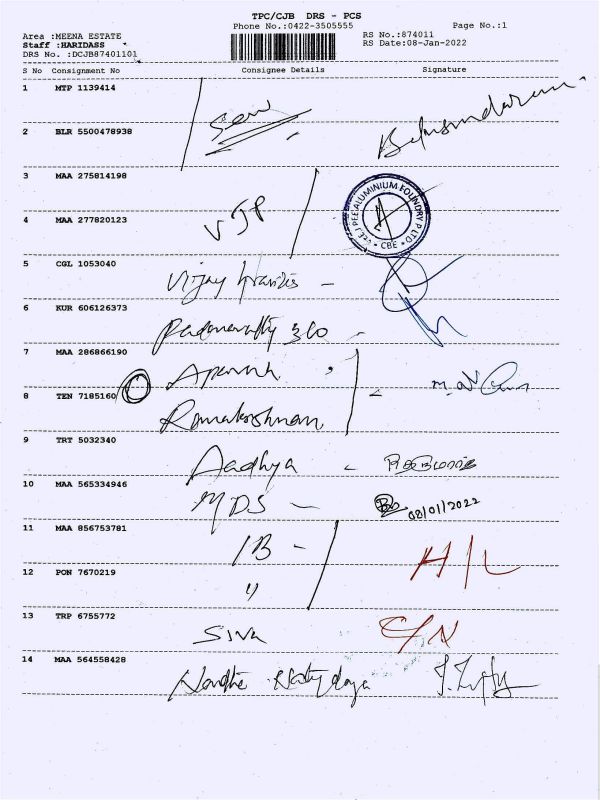 TPC/CJB DRS - PCS
Phone No.:0422-3505555 Page No.:1
Area :MEENA ESTATE RS No.:874011
Staff :HARIDASS RS Date:08-Jan-2022
DRS No. :DCJB87401101
S No Consignment No Consignee Details Signature
1 MTP 1139414
2 BLR 5500478938
3 MAA 275814198
4 MAA 277820123 VJP
PEE ALUMINIUM FOUNDRY P LTD CBE
5 CGL 1053040 Vijay
6 KUR 606126373
7 MAA 286866190 Aparna
8 TEN 7185160 Ramakrishnan
9 TRT 5032340 Aadhya
10 MAA 565334946 MDS 08/01/2022
11 MAA 856753781 IB H/L
12 PON 7670219 "
13 TRP 6755772 Siva C/N
14 MAA 564558428